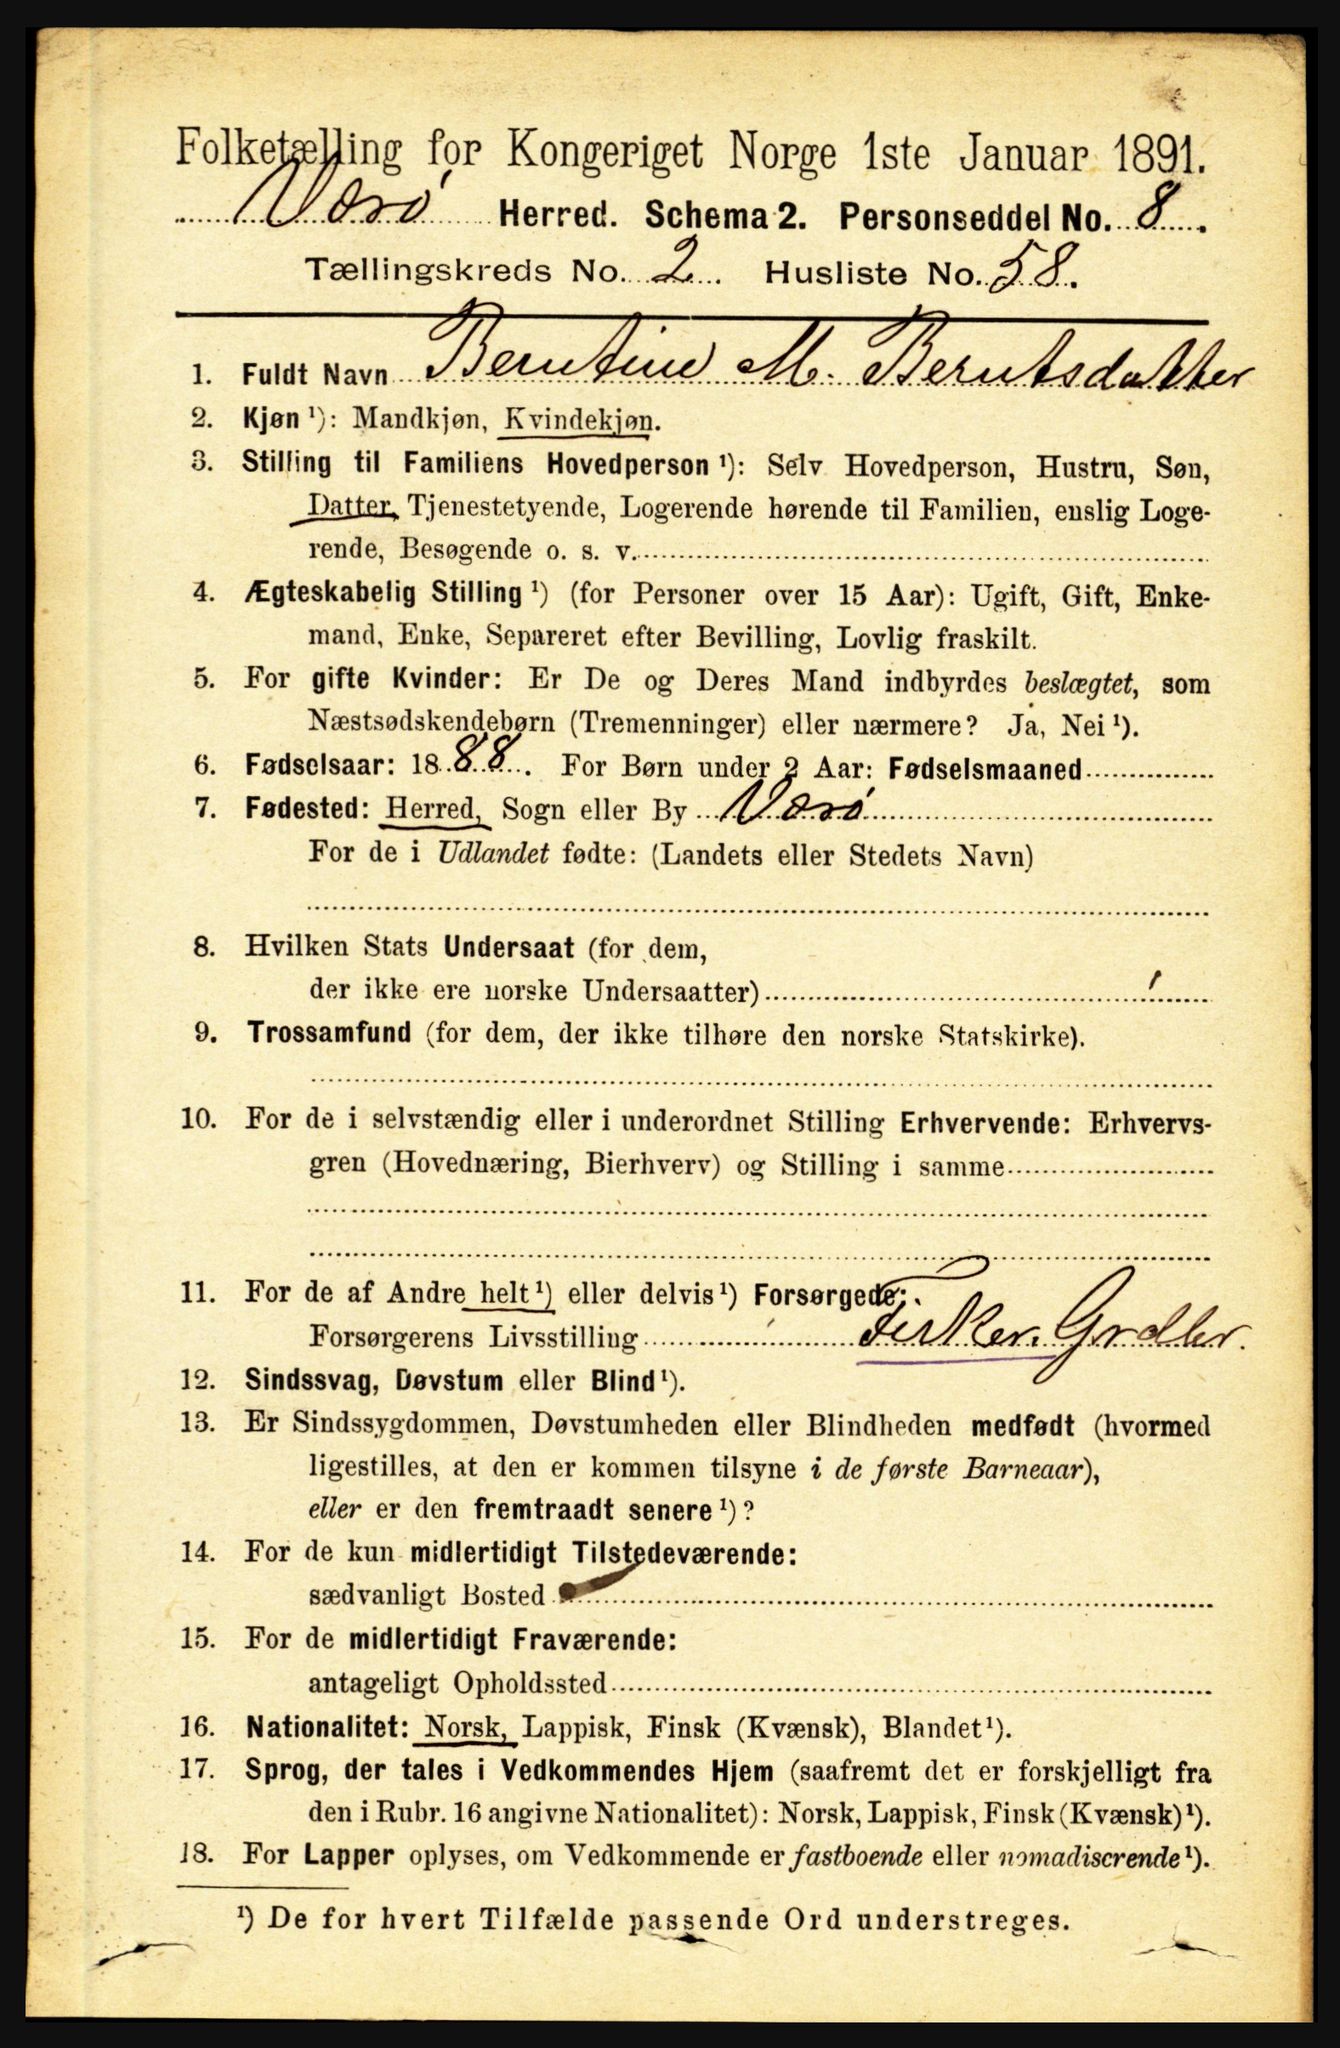 Folketælling for Kongeriget Norge 1ste Januar 1891.
Værø Herred. Schema 2. Personseddel No. 8.
Tællingskreds No. 2. Husliste No. 58.
1. Fuldt Navn Berntine M. Berntsdatter
2. Kjøn ¹): Mandkjøn, Kvindekjøn.
3. Stilling til Familiens Hovedperson ¹): Selv Hovedperson, Hustru, Søn,
Datter, Tjenestetyende, Logerende hørende til Familien, enslig Loge-
rende, Besøgende o. s. v.
4. Ægteskabelig Stilling ¹) (for Personer over 15 Aar): Ugift, Gift, Enke-
mand, Enke, Separeret efter Bevilling, Lovlig fraskilt.
5. For gifte Kvinder: Er De og Deres Mand indbyrdes beslægtet, som
Næstsødskendebørn (Tremenninger) eller nærmere? Ja, Nei ¹).
6. Fødselsaar: 1888. For Børn under 2 Aar: Fødselsmaaned
7. Fødested: Herred, Sogn eller By Værø
For de i Udlandet fødte: (Landets eller Stedets Navn)
8. Hvilken Stats Undersaat (for dem,
der ikke ere norske Undersaatter)
9. Trossamfund (for dem, der ikke tilhøre den norske Statskirke).
10. For de i selvstændig eller i underordnet Stilling Erhvervende: Erhvervs-
gren (Hovednæring, Bierhverv) og Stilling i samme
11. For de af Andre helt ¹) eller delvis ¹) Forsørgede:
Forsørgerens Livsstilling Fisker.
12. Sindssvag, Døvstum eller Blind ¹).
13. Er Sindssygdommen, Døvstumheden eller Blindheden medfødt (hvormed
ligestilles, at den er kommen tilsyne i de første Barneaar),
eller er den fremtraadt senere ¹)?
14. For de kun midlertidigt Tilstedeværende:
sædvanligt Bosted
15. For de midlertidigt Fraværende:
antageligt Opholdssted
16. Nationalitet: Norsk, Lappisk, Finsk (Kvænsk), Blandet ¹).
17. Sprog, der tales i Vedkommendes Hjem (saafremt det er forskjelligt fra
den i Rubr. 16 angivne Nationalitet): Norsk, Lappisk, Finsk (Kvænsk) ¹).
18. For Lapper oplyses, om Vedkommende er fastboende eller nomadiserende ¹).
¹) De for hvert Tilfælde passende Ord understreges.